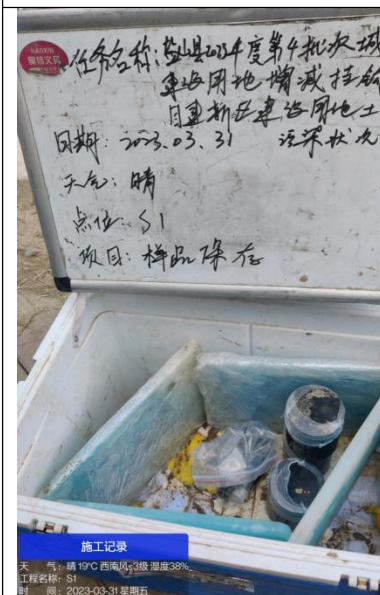 HAOXIN
任务名称：盐山县2023年度第4批次城
建设用地增减挂钩
目建新区建设用地土
日期：2023.03.31 污染状况
天气：晴
点位：S1
项目：样品保存
施工记录
天 气：晴 19℃ 西南风≤3级 湿度38%
工程名称：S1
时 间：2023-03-31 星期五